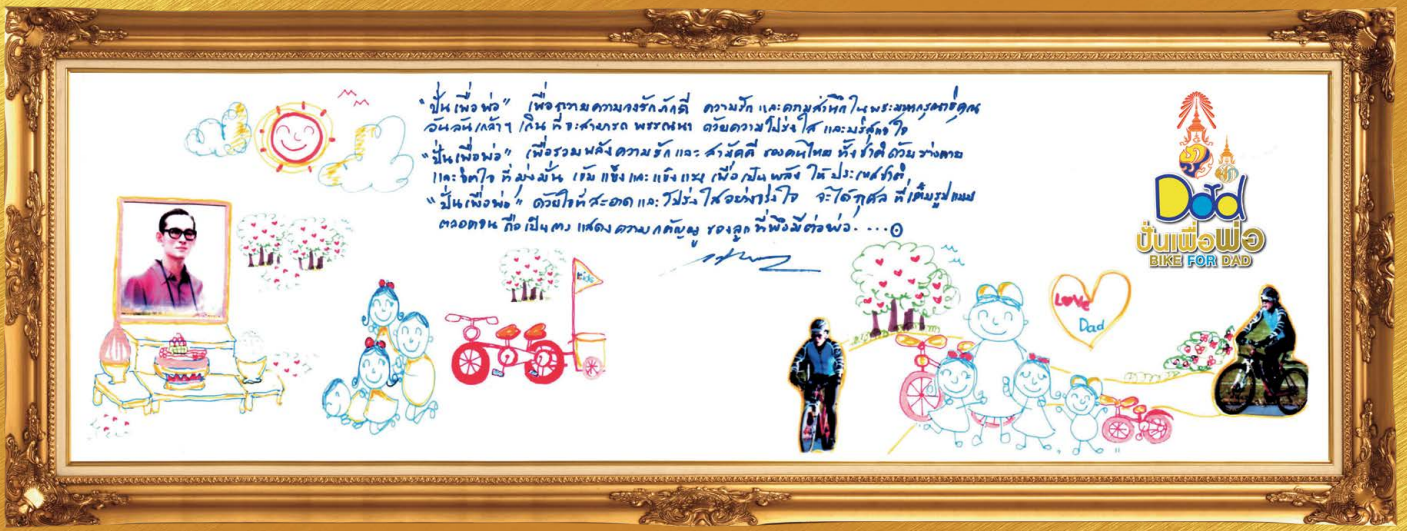 "ปั่นเพื่อพ่อ" เพื่อถวายความจงรักภักดี ความรัก และความสำนึกในพระมหากรุณาธิคุณ
อันล้นเกล้าฯ เกินที่จะสามารถ พรรณนา ด้วยความโปร่งใส และบริสุทธิ์ใจ
"ปั่นเพื่อพ่อ" เพื่อรวมพลังความรักและ สามัคคี ของคนไทย ทั้งชาติด้วยร่างกาย
และจิตใจ ที่มุ่งมั่น เข้มแข็งและแข็งแรง เพื่อเป็นพลัง ให้ประเทศชาติ
"ปั่นเพื่อพ่อ" ด้วยใจที่สะอาด และโปร่งใสอย่างจริงใจ จะได้กุศล ที่เต็มรูปแบบ
ตลอดจน ถือเป็นการ แสดงความกตัญญู ของลูก ที่พึงมีต่อพ่อ....
Kids
LOVE
Dad
Dad
ปั่นเพื่อพ่อ
BIKE FOR DAD